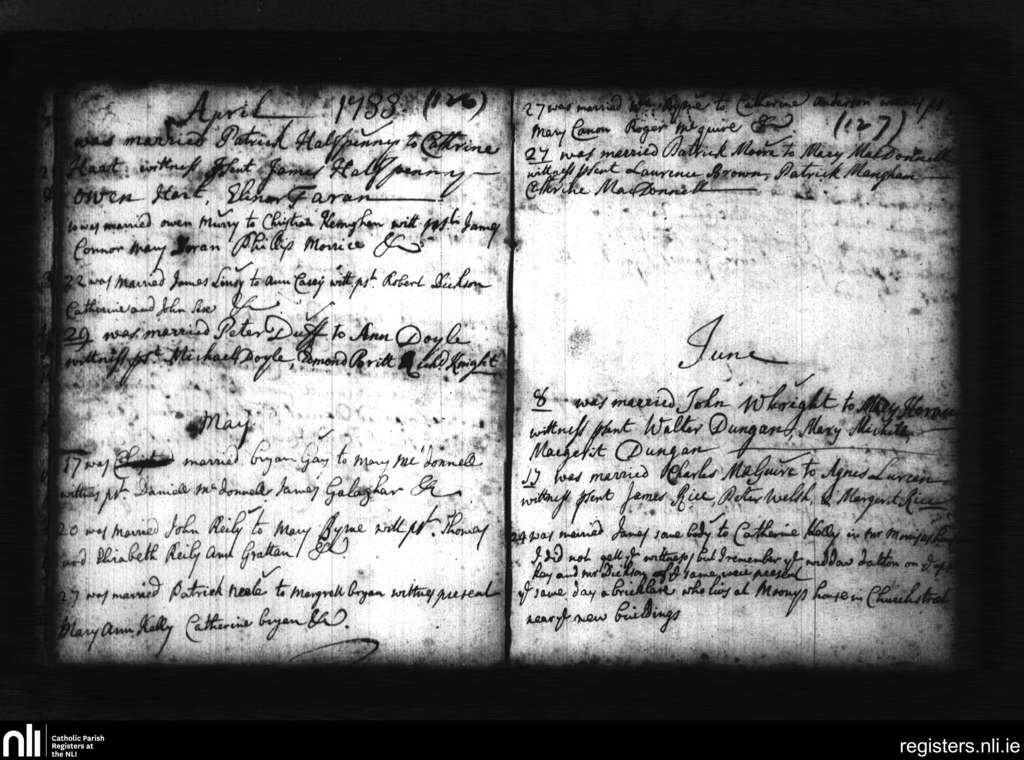 April 1788 (126)
was married Patrick Halfpenny to Cathrine
Haat witness psent James Halfpenny
owen Hart, Elinor Faran
was married owen Murry to Christian Kernghan witt pst. James
Connor Mary Doran Phillip Morrice &c
22 was married James to Ann Casey witt pst. Robert Dickson
Catherine and John &c
29 was married Peter Duff to Ann Doyle
wittness pst. Michael Doyle, Edmond Knight
May
17 was married bryan Gay to mary mcdonnell
witness pst. Daniell mcdonnell James Galaghar &c
20 was married John Reily to Mary Byrne witt pst. Thomas
and Elizabeth Reily Ann Grattan &c
27 was married Patrick neele to Margrett bryan wittness present
Mary Ann Kelly Catherine bryan &c.
27 was married to Catherine anderson
Mary Canon Roger mcguire &c
(127)
27 was married Patrick Moore to Mary MacDonnell
wittness psent Laurence Brown, Patrick Manghan
Cathrine MacDonnell
June
8 was married John Whright to Mary
wittness psent Walter Dungan, Mary
Margerit Dungan
17 was married Charles MaGuire to Agnes
wittness psent James Rice, Peter Welsh, & Margerit Rice
24 was married James to Catherine Kelly in mr
I did not get ye witness but I remember yt widdaw dalton on
Kay and mr Dickson of ye same were present
ye same day a bricklare who lives at Moonys house in Churchstreet
near ye new buildings
nli
Catholic Parish
Registers at
the NLI
registers.nli.ie